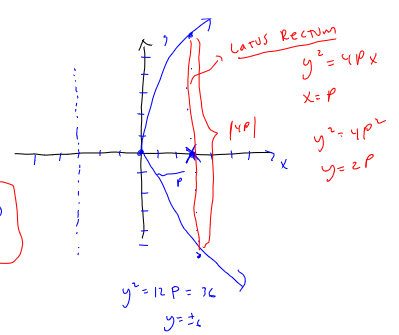 y
Latus Rectum
y² = 4px
x = p
|4p|
y² = 4p²
y = 2p
x
p
y² = 12p = 36
y = ±6